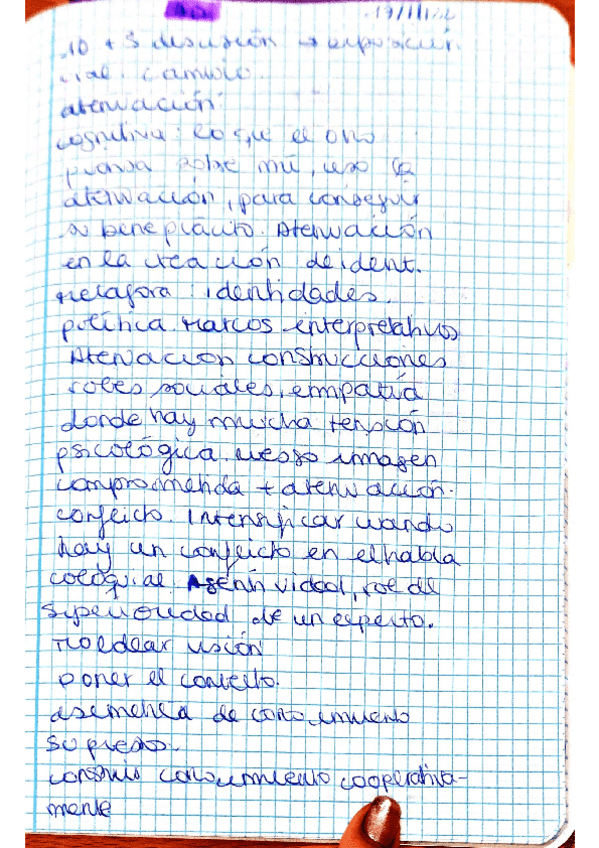 19/11/22
10 + 5 discusión → exposición
cambio.
atenuación:
cognitiva: lo que el otro
piensa sobre mí, uso la
atenuación, para conseguir
su beneplácito. Atenuación
en la creación de ident.
Metáfora: identidades.
política. Marcos interpretativos
Atenuación construcciones
roles sociales, empatía
donde hay mucha tensión
psicológica. riesgo imagen
comprometida + atenuación.
conflicto. Intensificar cuando
hay un conflicto en el habla
coloquial. Agentividad, rol de
superioridad de un experto.
Moldear visión
poner el contexto.
asimetría de conocimiento
construir conocimiento cooperativa-
mente